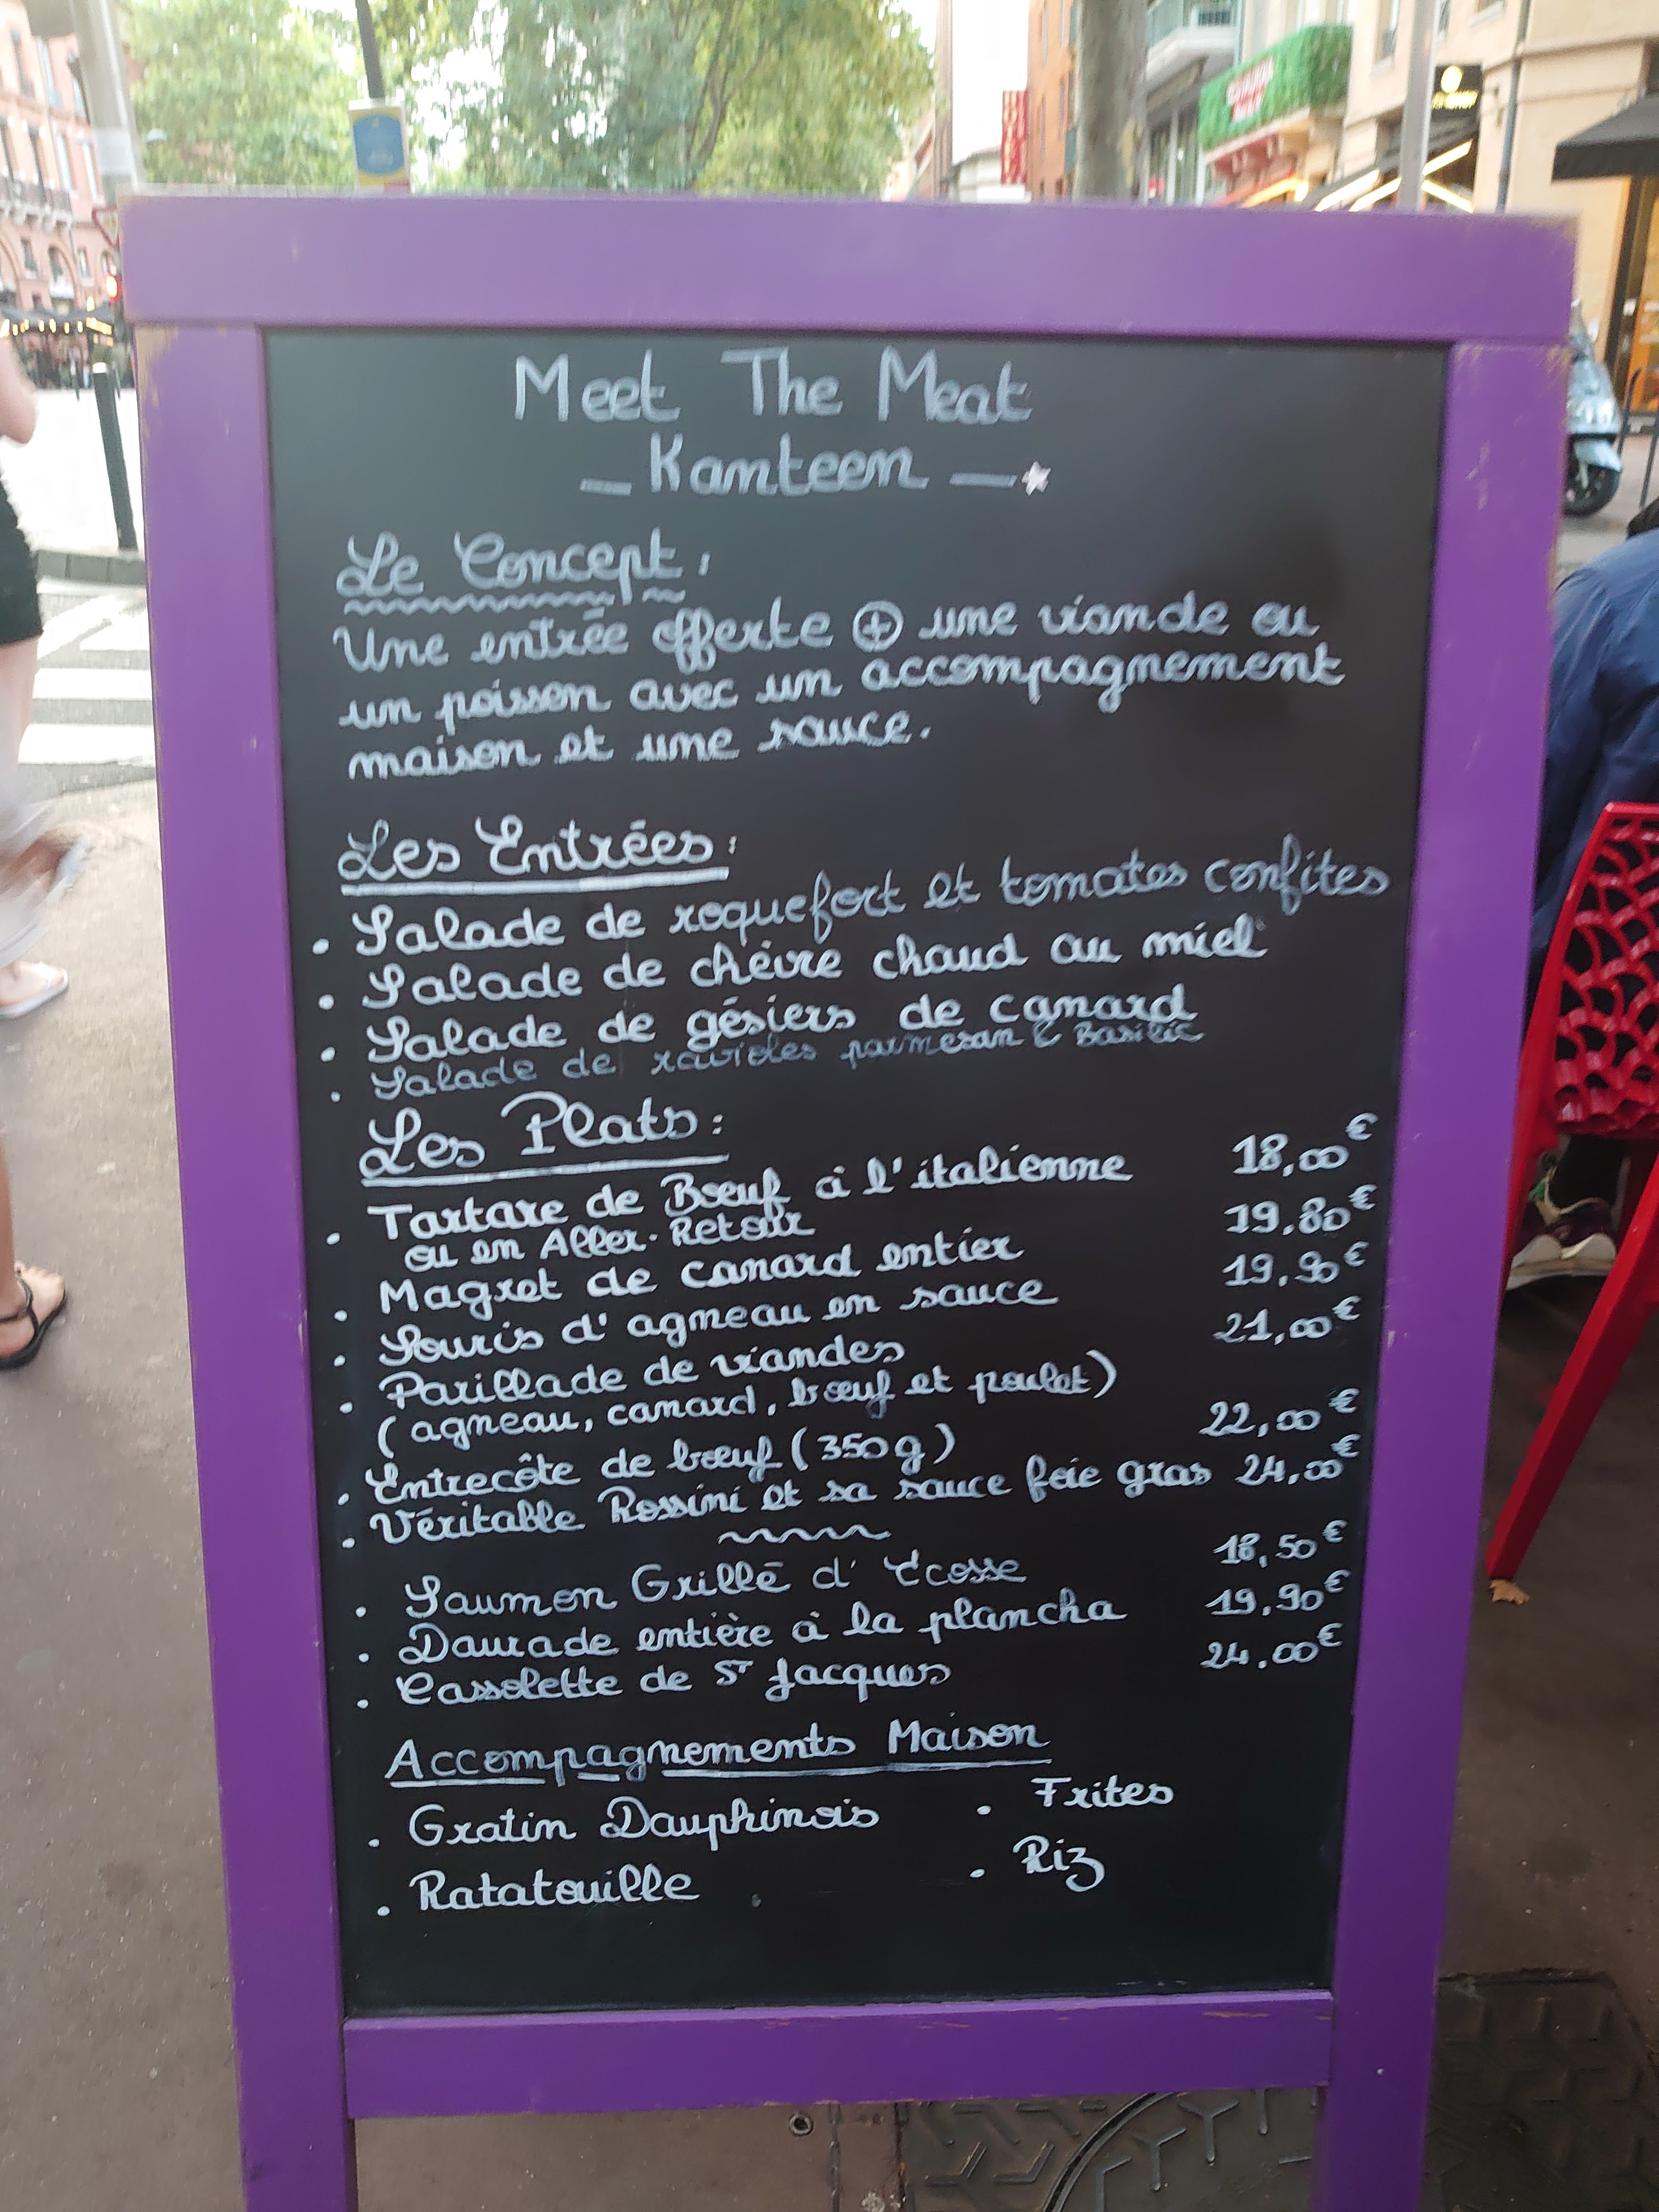 Meet The Meat
_ Kanteen _
Le Concept :
Une entrée offerte ⊕ une viande ou
un poisson avec un accompagnement
maison et une sauce.
Les Entrées :
. Salade de roquefort et tomates confites
. Salade de chèvre chaud au miel
. Salade de gésiers de canard
. Salade de ravioles parmesan & Basilic
Les Plats :
. Tartare de Bœuf à l'italienne 18,00€
ou en Aller-Retour
. Magret de canard entier 19,80€
. Souris d'agneau en sauce 19,90€
. Parillade de viandes 21,00€
(agneau, canard, bœuf et poulet)
. Entrecôte de bœuf (350g) 22,00€
. Véritable Rossini et sa sauce foie gras 24,00€
. Saumon Grillé d'Ecosse 18,50€
. Daurade entière à la plancha 19,90€
. Cassolette de St Jacques 24.00€
Accompagnements Maison
. Gratin Dauphinois . Frites
. Ratatouille . Riz